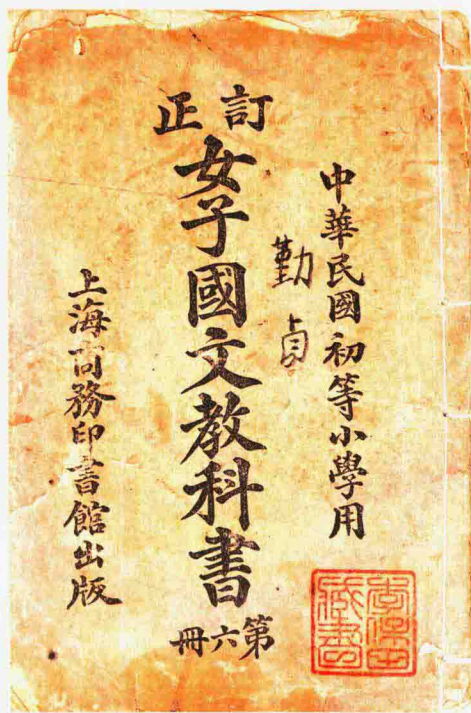 中華民國初等小學用
勤貞
訂正
女子國文教科書
第六冊
上海商務印書館出版